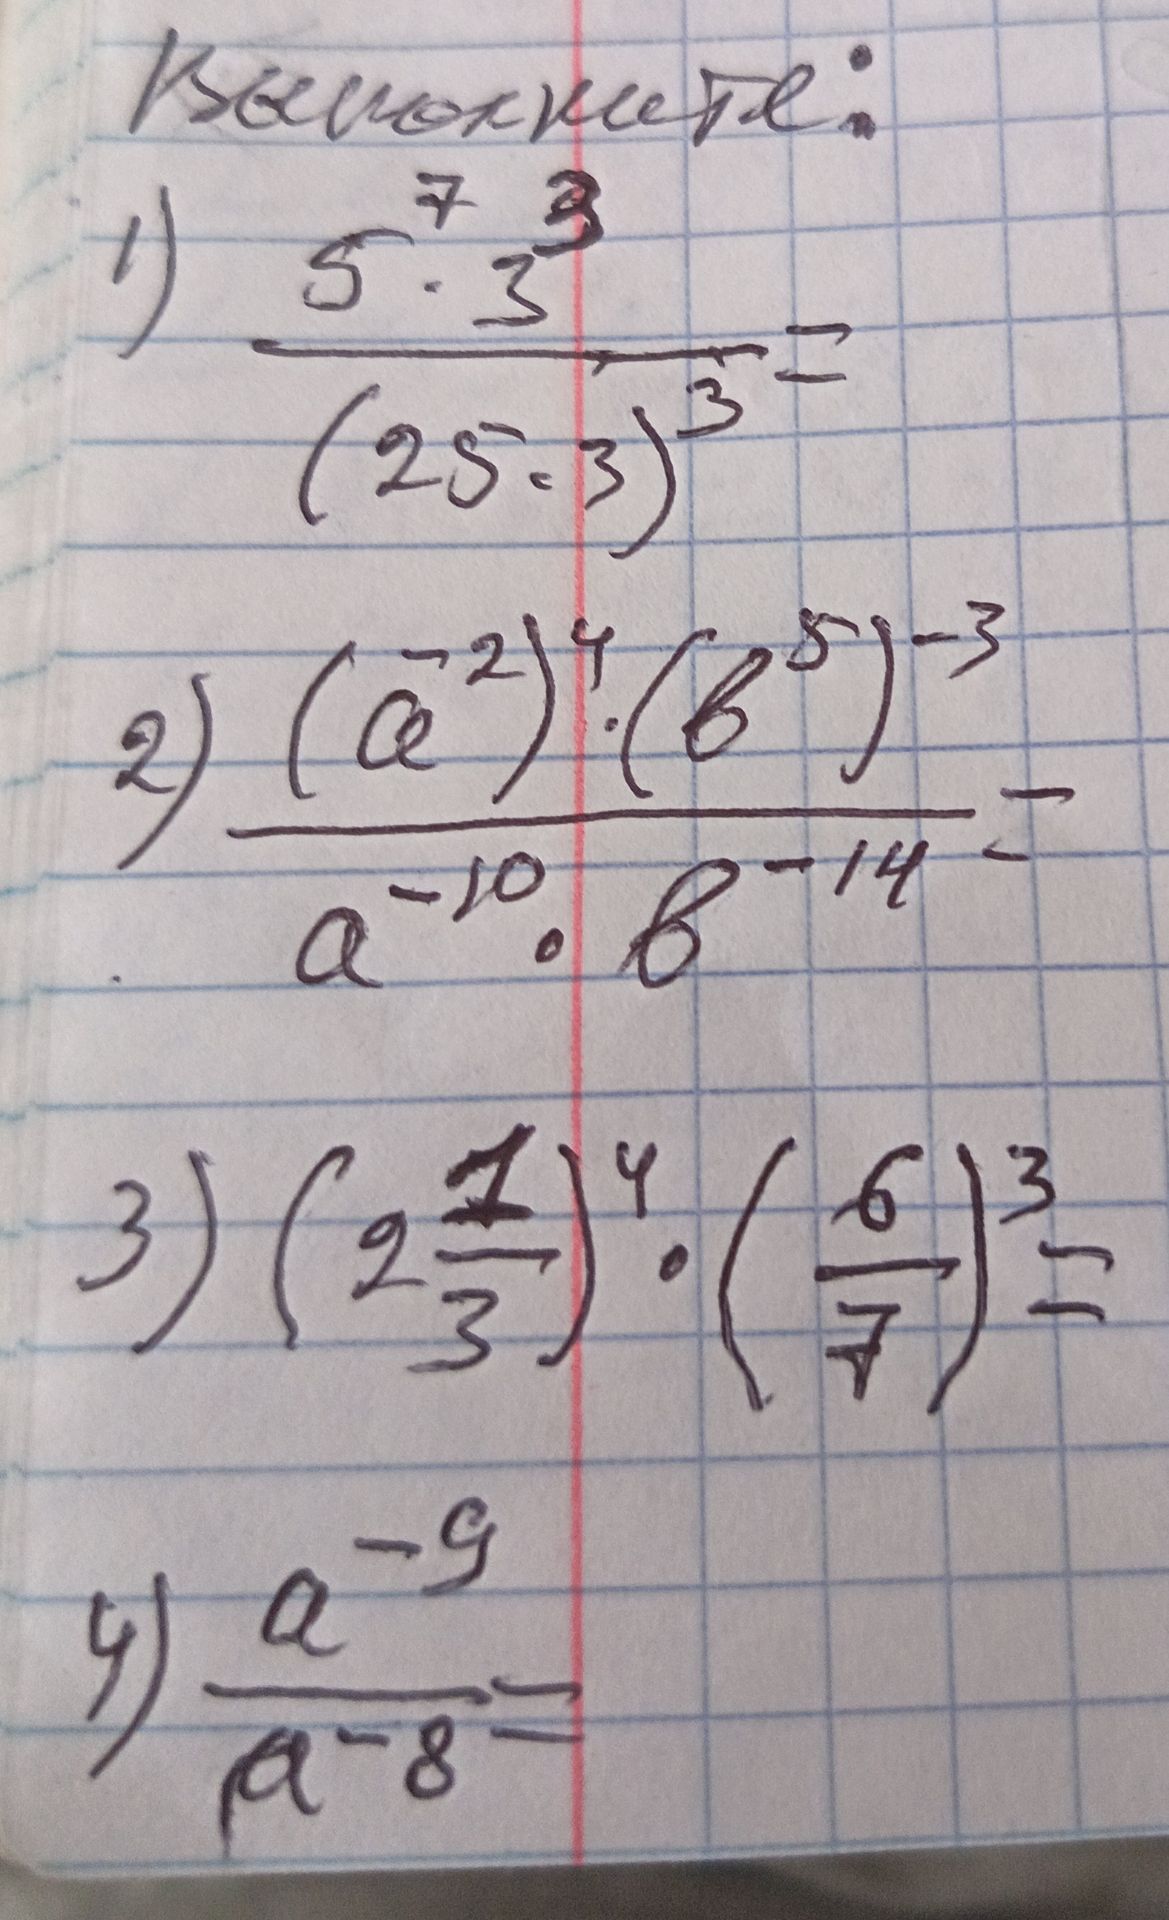 Выполните:
1) \frac{5^7 · 3^3}{(25 · 3)^3} =
2) \frac{(a^{-2})^4 · (b^5)^{-3}}{a^{-10} · b^{-14}} =
3) (2\frac{1}{3})^4 · (\frac{6}{7})^3 =
4) \frac{a^{-9}}{a^{-8}} =